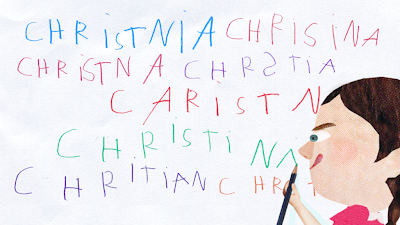 CHRiSTNiA CHRISINA
CHRiSTNA CHRSTIA
CARISTN
CHRiSTiNA
CHRITIAN CHR